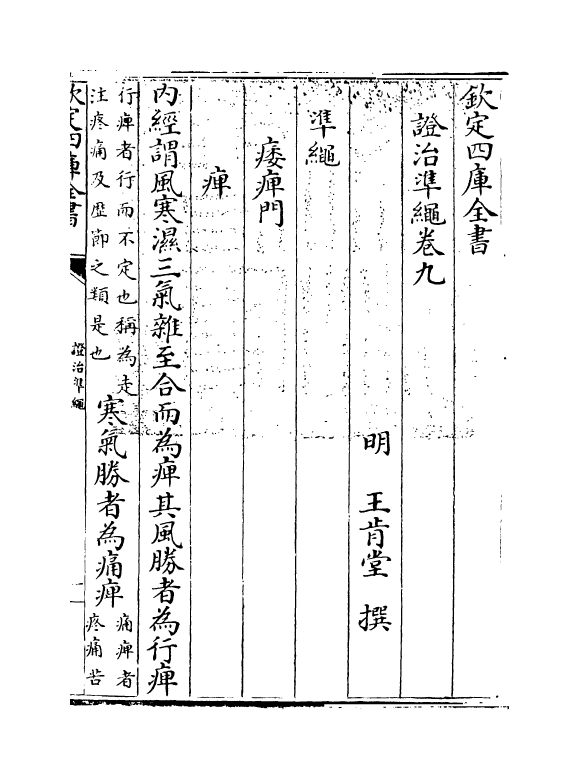 欽定四庫全書
證治準繩卷九
明 王肯堂 撰
準繩
痿痺門
痺
内經謂風寒濕三氣雜至合而為痺其風勝者為行痺
行痺者行而不定也稱為走
注疼痛及歴節之類是也
寒氣勝者為痛痺
痛痺者
疼痛苦
欽定四庫全書
證治凖繩